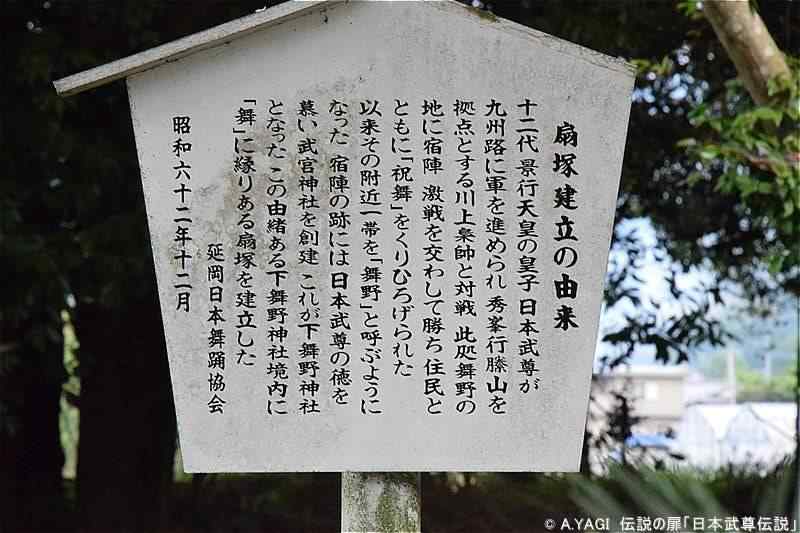 扇塚建立の由来
十二代 景行天皇の皇子 日本武尊が
九州路に軍を進められ 秀峯行縢山を
拠点とする川上梟師と対戦 此処舞野の
地に宿陣 激戦を交わして勝ち 住民と
ともに「祝舞」をくりひろげられた
以来その附近一帯を「舞野」と呼ぶように
なった 宿陣の跡には 日本武尊の徳を
慕い 武宮神社を創建 これが下舞野神社
となった この由緒ある下舞野神社境内に
「舞」に縁りある扇塚を建立した
延岡日本舞踊協会
昭和六十二年十二月
© A.YAGI 伝説の扉「日本武尊伝説」